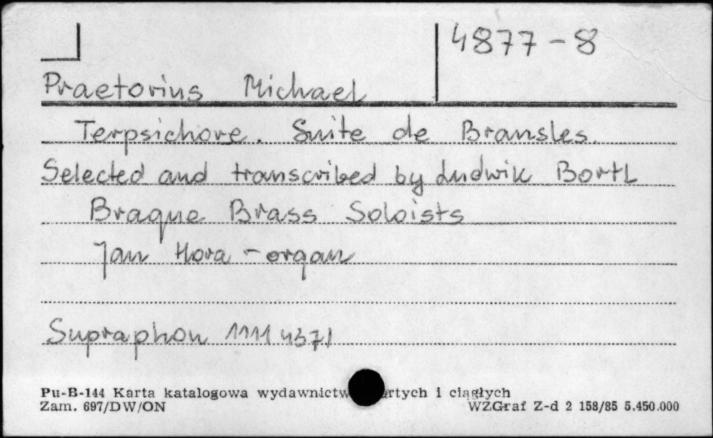 4877-8
Praetorius Michael
Terpsichore. Suite de Bransles.
Selected and transcribed by Ludwik Bortl
Braque Brass Soloists
Jan Hora - organ
Supraphon 1111 4371
Pu-B-144 Karta katalogowa wydawnictw rtych i ciągłych
Zam. 697/DW/ON WZGraf Z-d 2 158/85 5.450.000